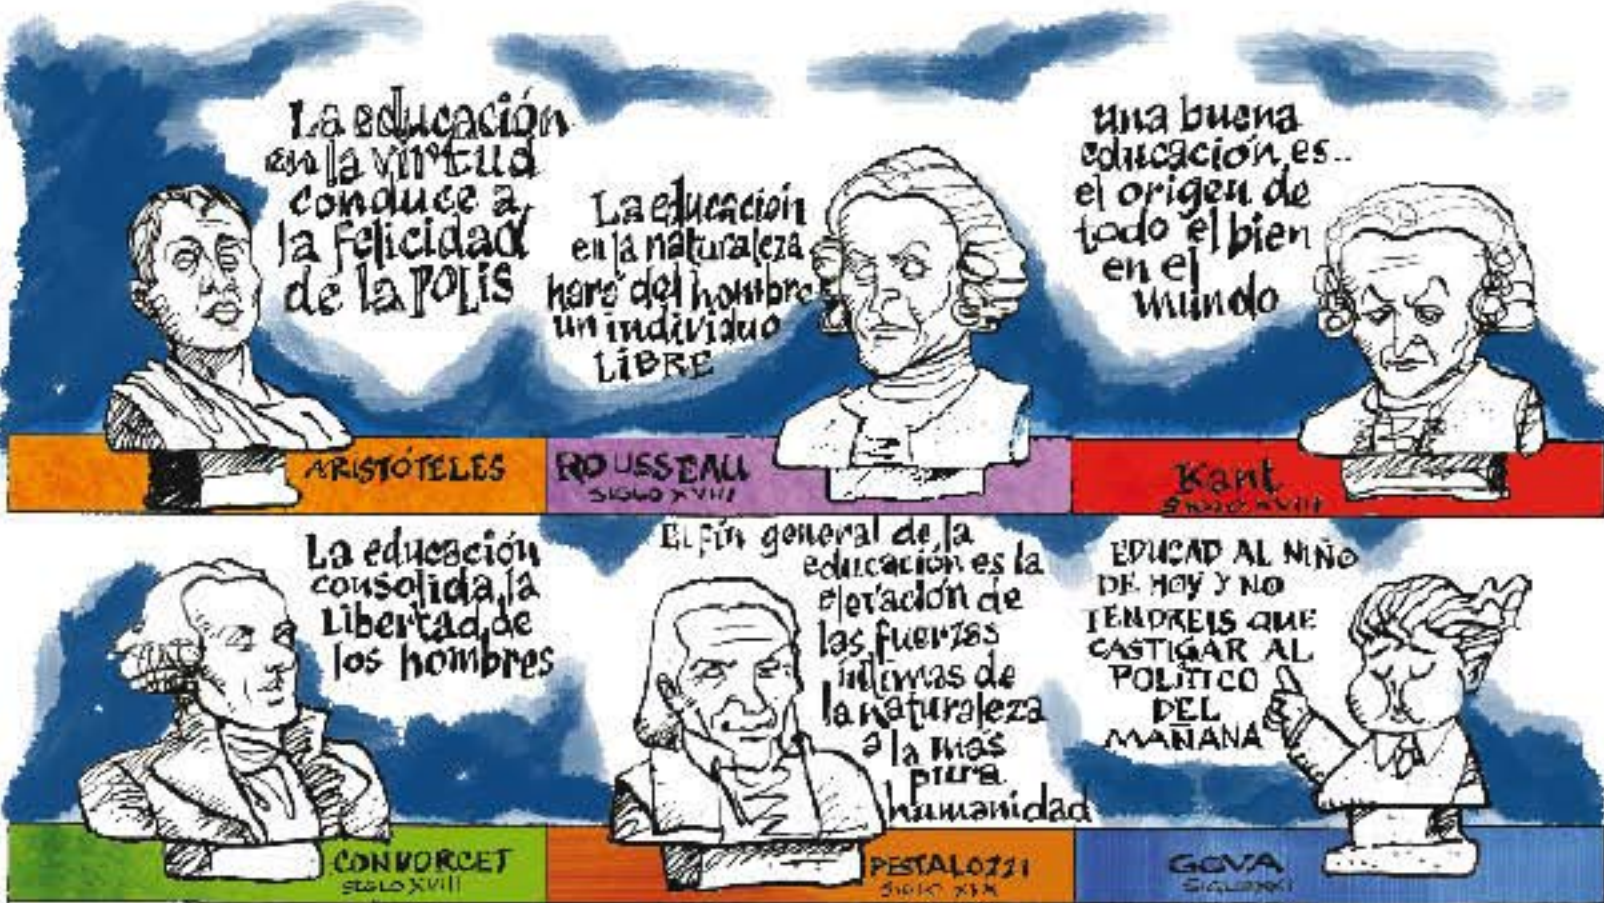 La educación
en la virtud
conduce a
la felicidad
de la POLIS
ARISTÓTELES
La educación
en la naturaleza
hará del hombre
un individuo
LIBRE
ROUSSEAU
SIGLO XVIII
una buena
educación es...
el origen de
todo el bien
en el
mundo
Kant
SIGLO XVIII
La educación
consolida la
Libertad de
los hombres
CONDORCET
SIGLO XVIII
El fin general de la
educación es la
elevación de
las fuerzas
íntimas de
la naturaleza
a la más
pura
humanidad
PESTALOZZI
SIGLO XIX
EDUCAD AL NIÑO
DE HOY Y NO
TENDREIS QUE
CASTIGAR AL
POLÍTICO
DEL
MAÑANA
SIGLO XXI